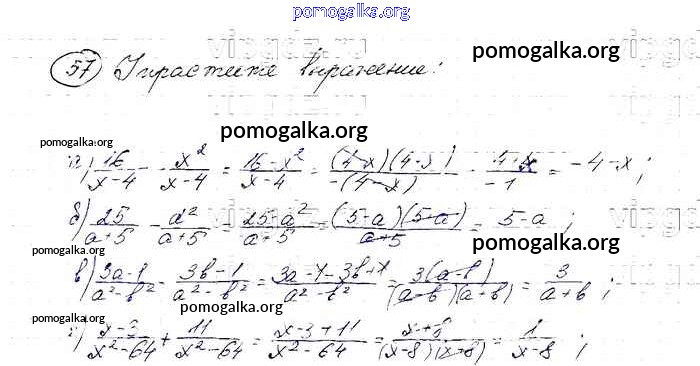 pomogalka.org
57) Упростите выражение:
pomogalka.org
pomogalka.org
pomogalka.org
а) 16/(x-4) - x²/(x-4) = (16-x²)/(x-4) = (4-x)(4-x)/-(4-x) = (4+x)/-1 = -4-x;
pomogalka.org
б) 25/(a+5) - a²/(a+5) = (25-a²)/(a+5) = (5-a)(5+a)/(a+5) = 5-a;
pomogalka.org
pomogalka.org
в) (3a-1)/(a²-b²) - (3b-1)/(a²-b²) = (3a-1-3b+1)/(a²-b²) = 3(a-b)/(a-b)(a+b) = 3/(a+b);
pomogalka.org
pomogalka.org
г) (x-3)/(x²-64) + 11/(x²-64) = (x-3+11)/(x²-64) = (x+8)/(x-8)(x+8) = 1/(x-8);
pomogalka.org